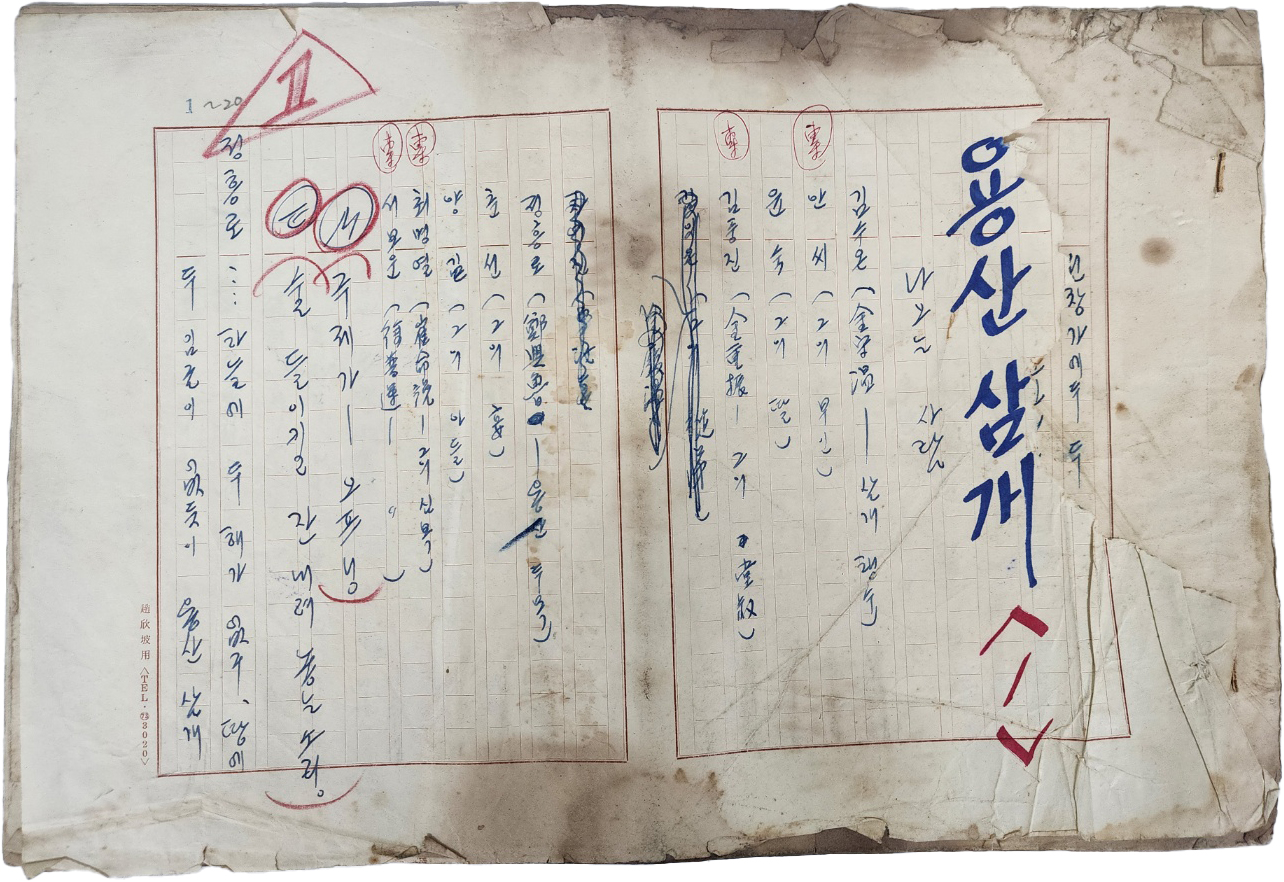 용산 삼개
<一>
나오는 사람
김수온 (金守溫— 삼개 행수)
안씨 (그의 부인)
윤숙 (그의 딸)
김중진 (金重振— 그의 堂叔)
정흥로 (鄭興魯— 용산 두목)
춘선 (그의 妾)
양길 (그의 아들)
최명열 (崔命說— 그의 심복)
서보운 (徐普運— 〃 )
주제가— 오프닝
술 들이킬 잔 내려놓는 소리.
정흥로 … 하늘에 두 해가 없구, 땅에
두 임금이 없듯이 용산 삼개
Ⅱ
1~20
趙欣坡用 <TEL·㉓3020>